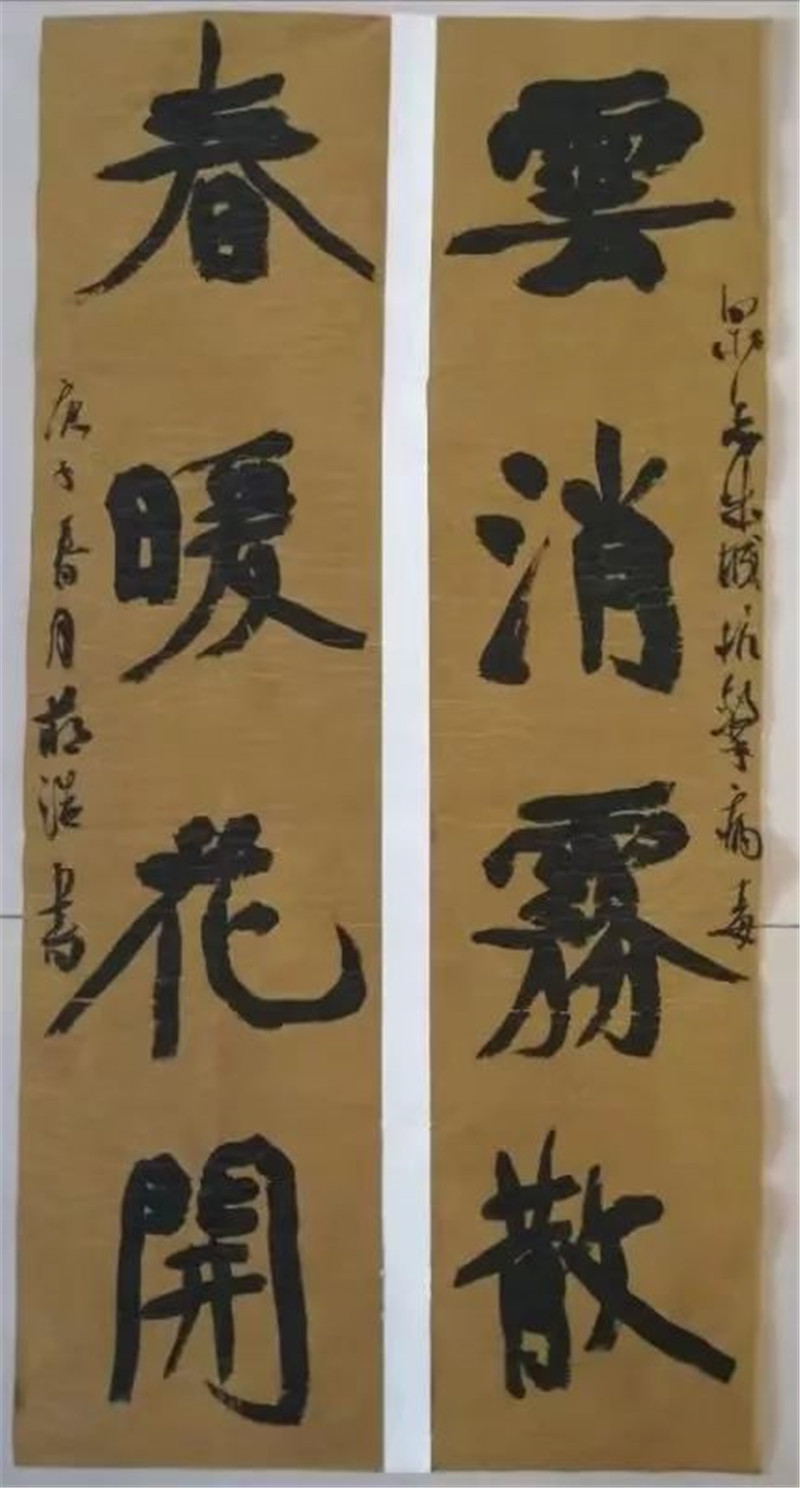 眾志成城抗擊病毒
雲消霧散
春暖花開
庚子春月書